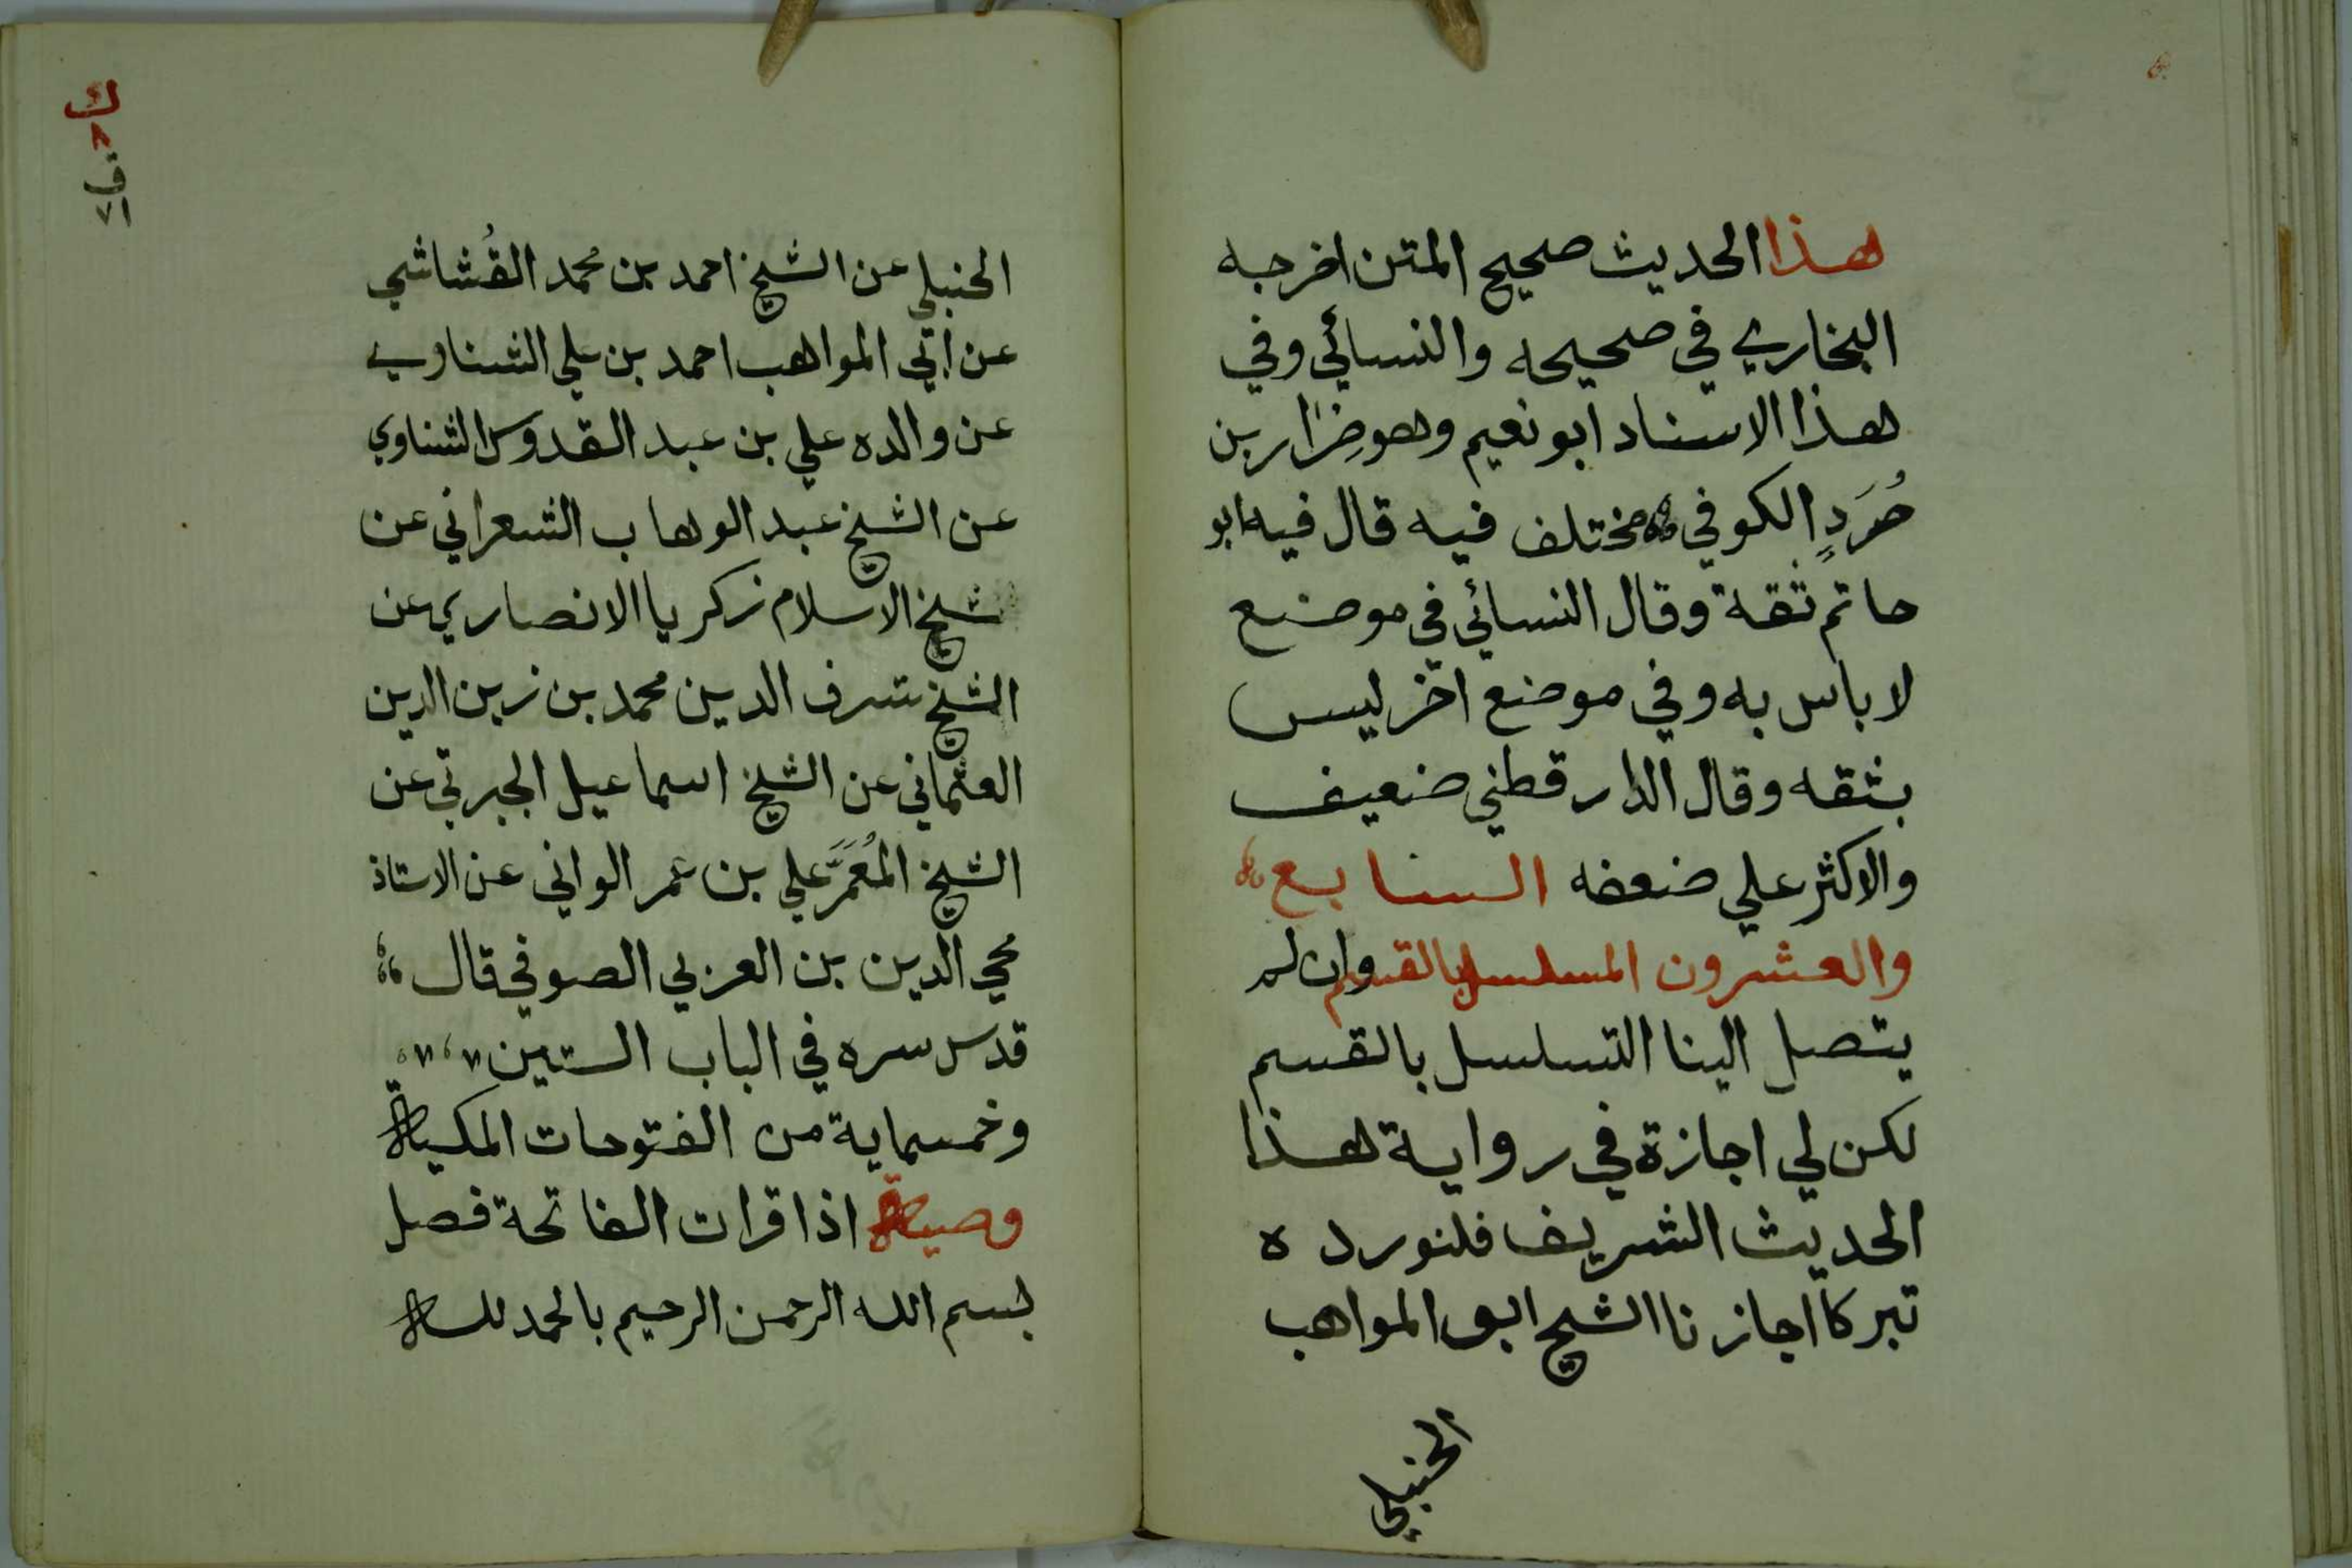 هذا الحديث صحيح المتن اخرجه
البخاري في صحيحه والنسائي وفي
هذا الاسناد ابو نعيم وهو ضرار بن
صُرَدٍ الكوفي مختلف فيه قال فيه ابو
حاتم ثقة وقال النسائي في موضع
لا باس به وفي موضع آخر ليس
بثقه وقال الدارقطني ضعيف
والاكثر علي ضعفه السابع
والعشرون المسلسل بالقسم وان لم
يتصل الينا التسلسل بالقسم
لكن لي اجازة في رواية هذا
الحديث الشريف فلنورده
تبركا اجازنا الشيخ ابو المواهب
الحنبلي
ك
٨
ق
٧١
الحنبلي عن الشيخ احمد بن محمد القُشاشي
عن ابي المواهب احمد بن علي الشناوي
عن والده علي بن عبد القدوس الشناوي
عن الشيخ عبد الوهاب الشعراني عن
شيخ الاسلام زكريا الانصاري عن
الشيخ شرف الدين محمد بن زين الدين
العثماني عن الشيخ اسماعيل الجبرتي عن
الشيخ المُعَمَّر علي بن عمر الواني عن الاستاذ
محي الدين بن العربي الصوفي قال
قدس سره في الباب الستين
وخمسماية من الفتوحات المكية
وصية اذا قرات الفاتحة فصل
بسم الله الرحمن الرحيم بالحمد لله